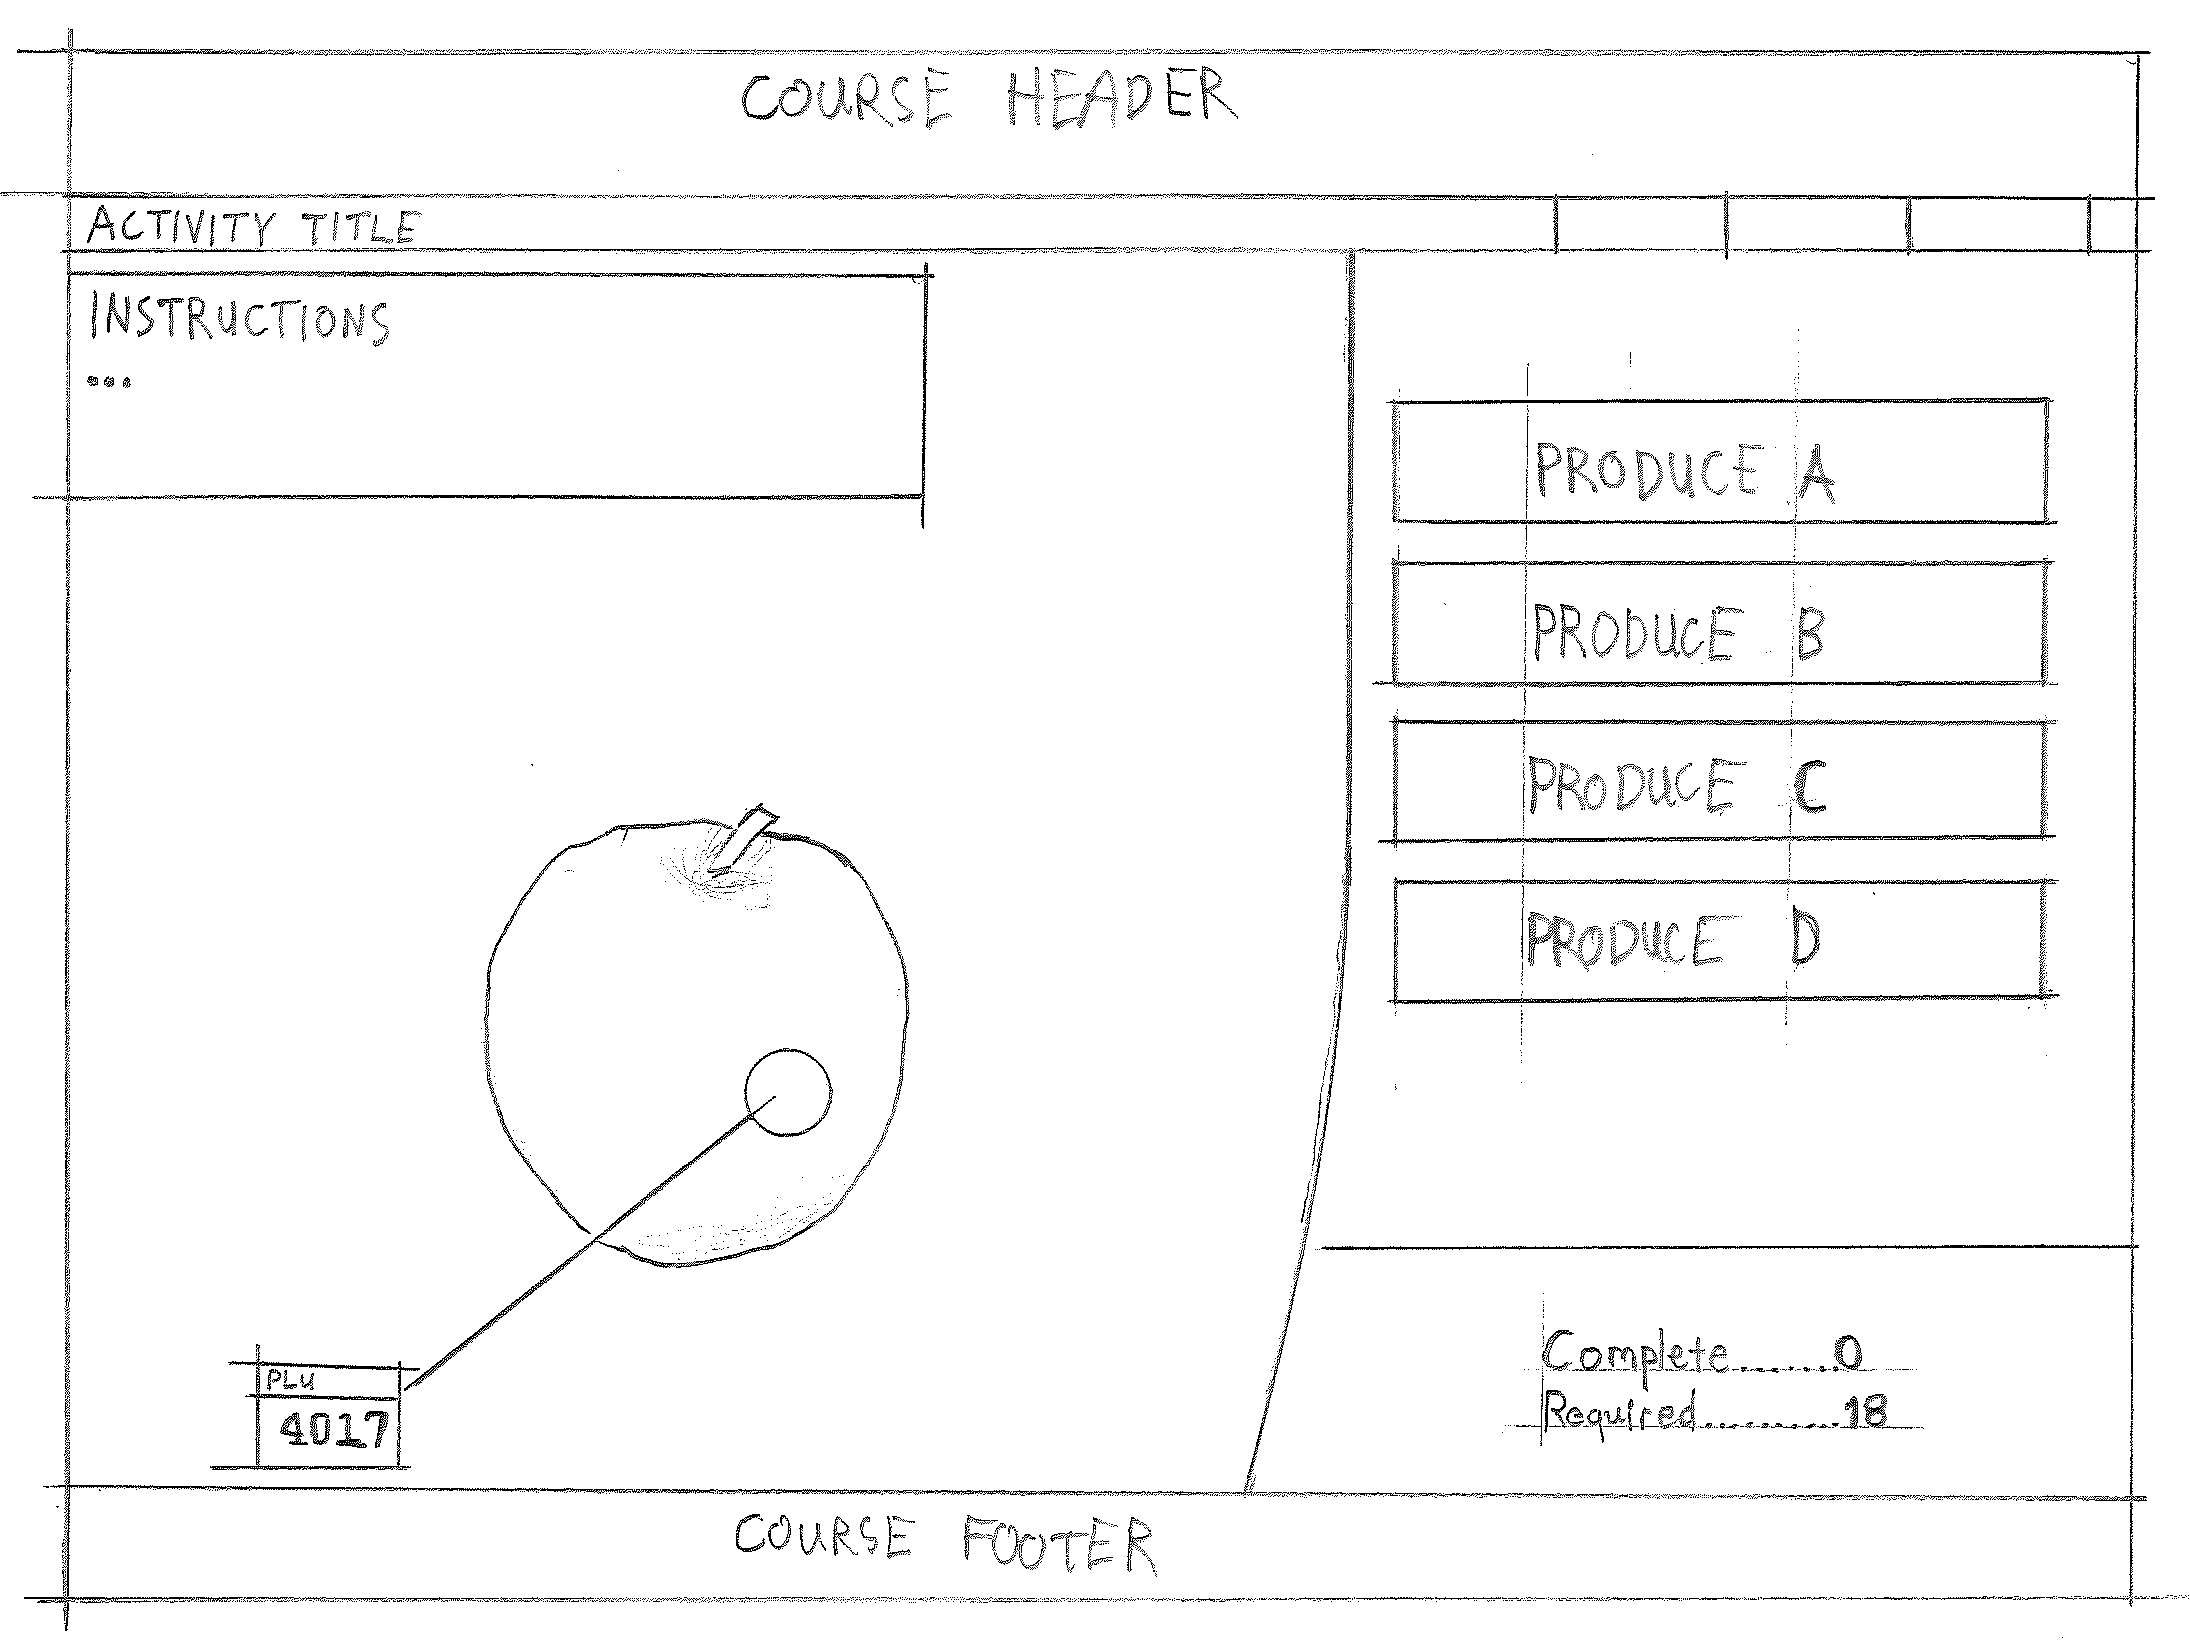 COURSE HEADER
ACTIVITY TITLE
INSTRUCTIONS
...
PRODUCE A
PRODUCE B
PRODUCE C
PRODUCE D
PLU
4017
Complete.......0
Required..........18
COURSE FOOTER